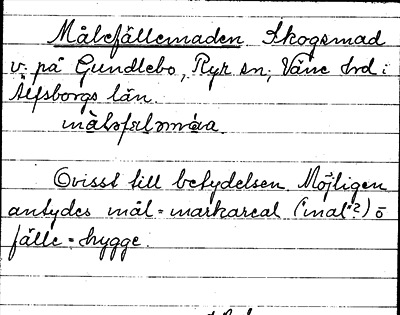 Målefällemaden Skogsmad
v. på Gundlebo, Ryr sn; Väne hrd i
Älfsborgs län.
Ovisst till betydelsen. Möjligen
antydes mål = markareal ("mal"?) o
fälle = hygge.